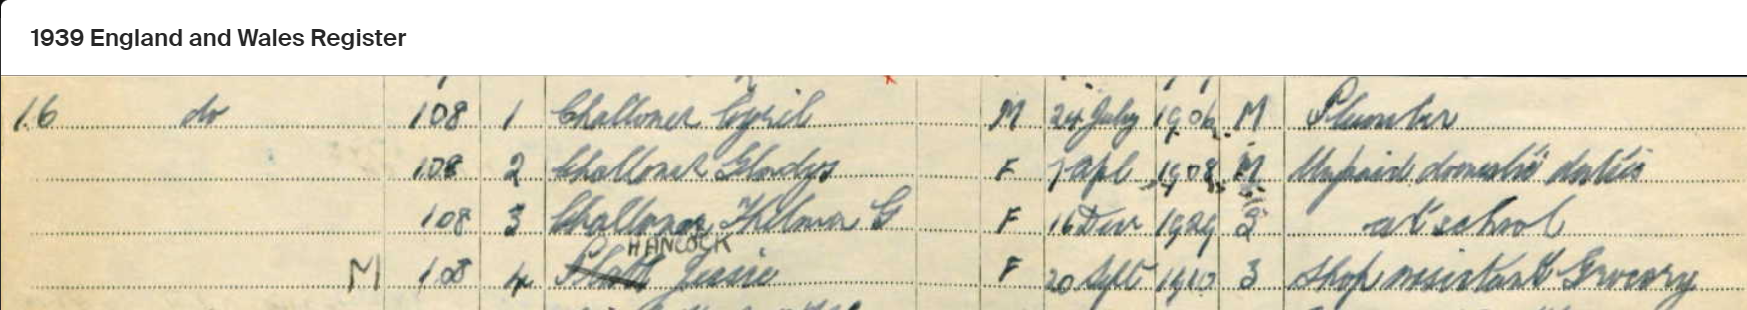 1939 England and Wales Register
16 do 108 1 Challoner Cyril M 24 July 1906 M Plumber
108 2 Challoner Gladys F 7 Apl 1908 M Unpaid domestic duties
108 3 Challoner Thelma G F 16 1929 S at school
HANCOCK
M 108 4 Platt Jessie F 20 Sept 1910 S Shop assistant Grocery